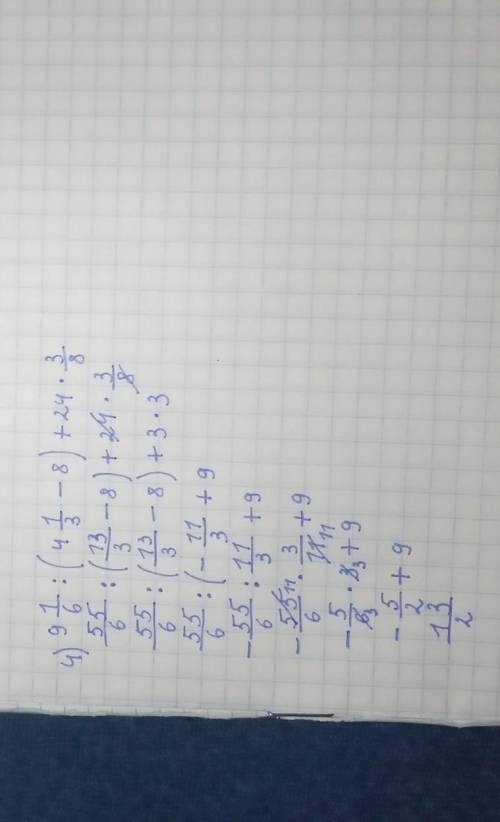 4) 9 1/6 : (4 1/3 - 8) + 24 · 3/8
55/6 : (13/3 - 8) + 24 · 3/8
55/6 : (13/3 - 8) + 3 · 3
55/6 : (- 11/3 + 9
- 55/6 : 11/3 + 9
- 55 11/6 · 3/11 11 + 9
- 5/6 3 · 3 3 + 9
- 5/2 + 9
13/2